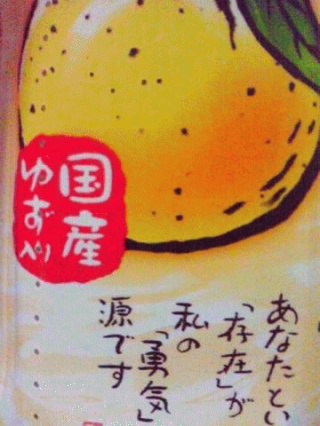 国産
ゆず入り
あなたとい
「存在」が
私の
「勇気」
源です